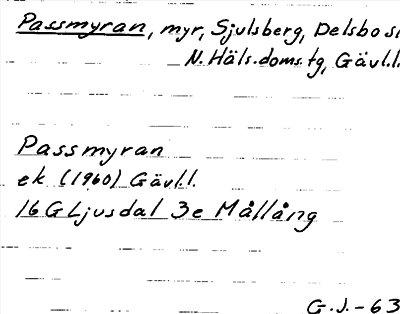 Passmyran, myr, Sjulsberg, Delsbo sn
N. Häls. doms. tg, Gävl.l.
Passmyran
ek (1960) Gävl.l.
16G Ljusdal 3e Mållång
G.J.-63